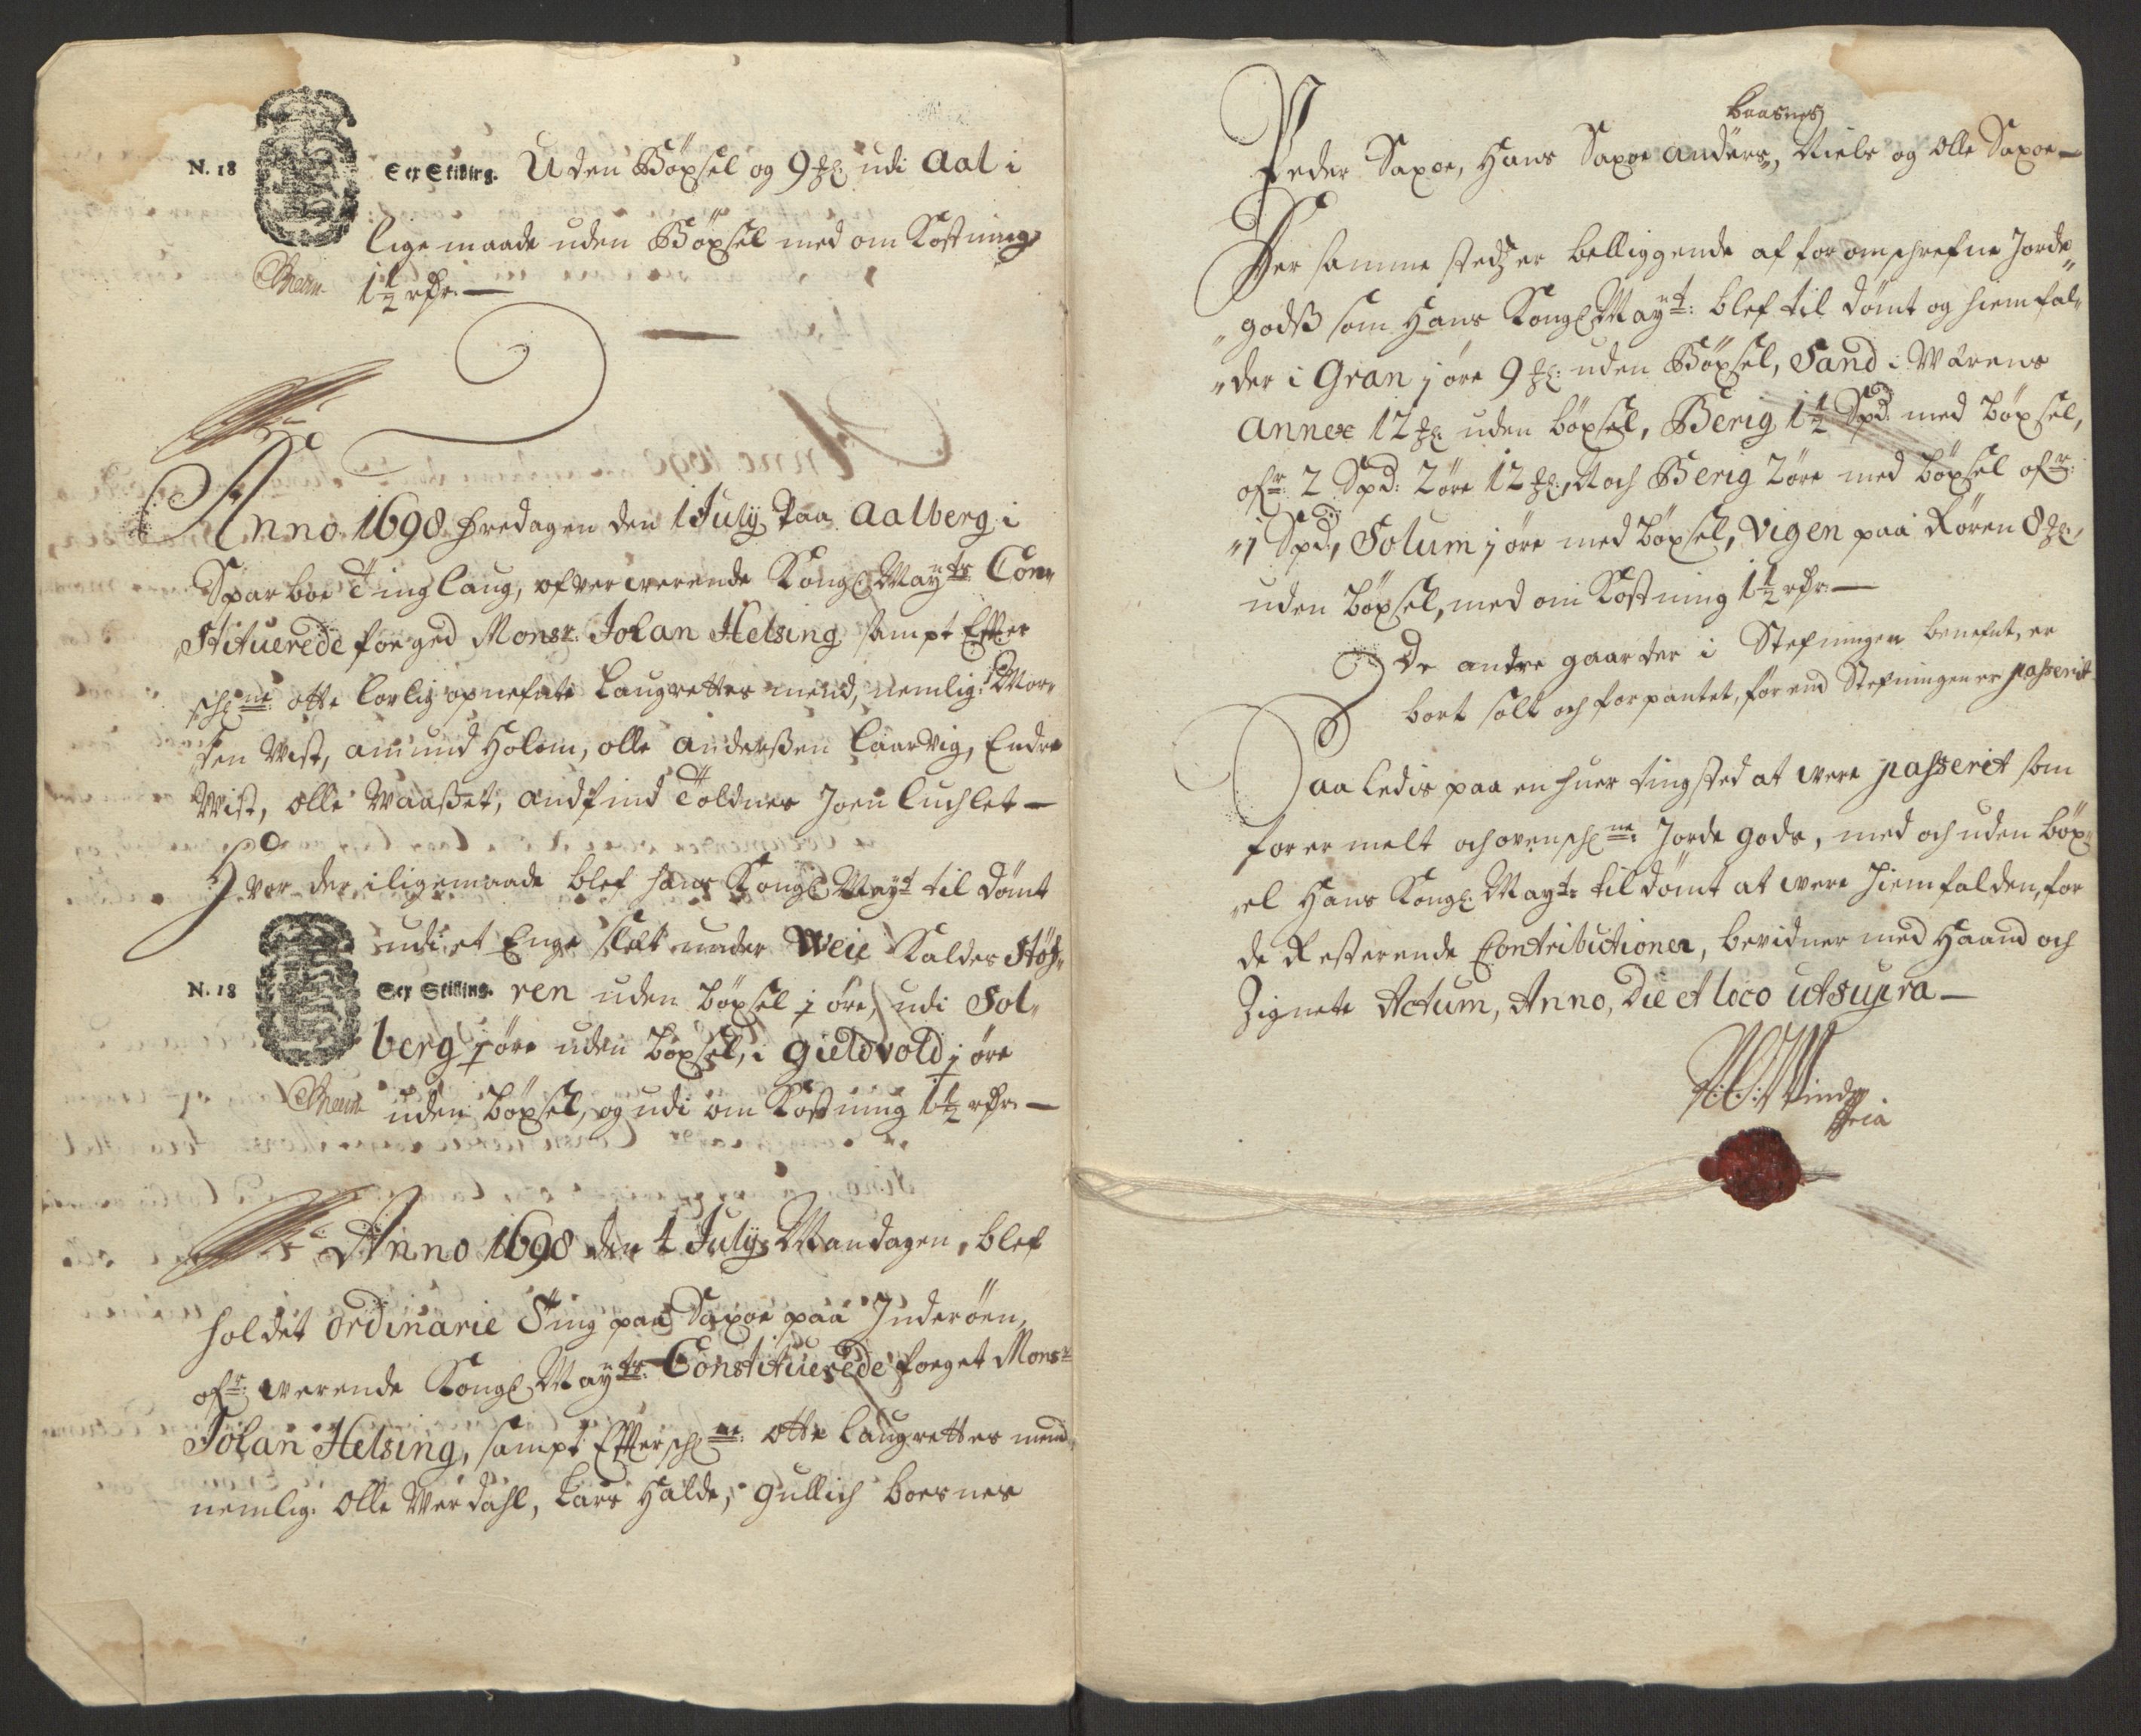 N. 18 Sex Skilling. Uden Böxsel og 9 ℔ udi Aal i
lige maade uden Böxsel med om Kostning
1½ rdr. —
Anno 1698 fredagen den 1 July Paa Aalberg i
Sparboe Ting laug, ofver werende Kongl. Mayts: Con„
„stituerede fogged Monsr. Johan Helsing, sampt Effter
schl.ne otte lovlig opnefnte Laugrettes mend, nemlig: Mor„
„ten Wist, amund Holem, olle anderßen Laarvig, Endre
Wist, olle Waaßet, andfind Toldnes Joen Luchlet —
Hvor der, iligemaade blef hans Kongl. Mayt til dömt
udi et Enge slet under Weie Kaldes Stöh„
N. 18 Sex Skilling. ren uden böxsel j öre, udi Sol„
berg j öre uden böxsel, i gieldvold j öre
uden böxsel, og udi om Kostning 1½ rdr. —
Anno 1698 den 4 July Mandagen, blef
holdet ordinarie Ting paa Saxoe paa Inderöen,
ofr: werende Kongl. Mayts: Constituerede foeget Monsr
Johan Helsing, sampt Effterschl.ne: otte laugrettes mend
nemlig: Olle Werdahl, Lars Halde, gullich boesnes
baasnes
Peder Saxoe, Hans Saxoe anders, Niels og olle Saxoe —
Her samme stedz er belliggende af for omschrefne Jorde„
„godß som Hans Kongl. Mayt: blef til dömt og hiemfal„
„der i Gran j öre 9 ℔: uden Böxsel, Sand i Warens
annex 12 ℔ uden böxsel, Berig 1½ Spd. med böxsel,
ofr: 2 Spd: 2 öre 12 ℔, Noch Berig 2 öre med böxsel ofr:
„j Spd:, Solum j öre med böxsel, Vigen paa Rören 8 ℔,
uden böxsel, med om Kostning 1½ rdr. —
De andre gaarder i Stefningen benefnt, er
bort solt och forpantet, för end Stefningen er passerit
Saaledis paa en huer tingsted at were passerit som
for er melt och ovenschl.ne: Jorde gods, med och uden böx„
„el Hans Kongl. Mayt: til dömt at were hiemfalden, for
de Resterende Contributioner, bevidner med Haand och
Zignete Actum, Anno, Die et loco ut supra —